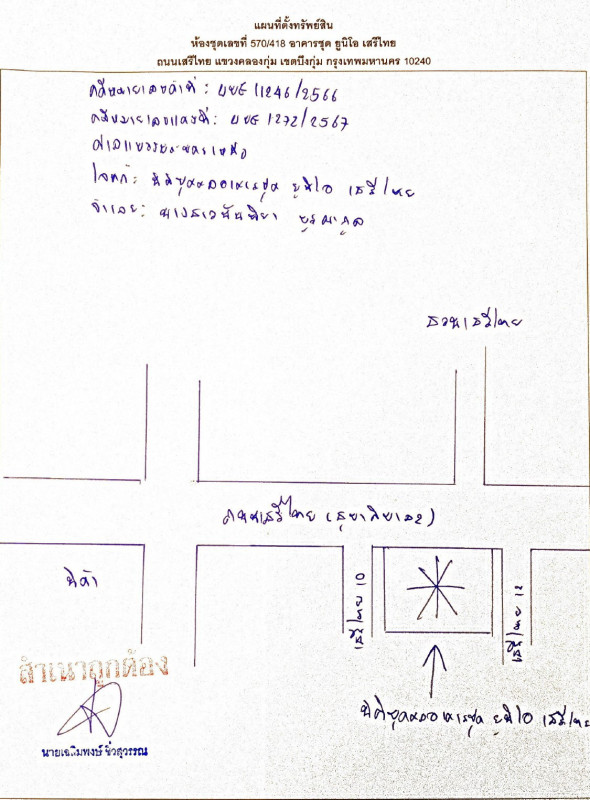 แผนที่ตั้งทรัพย์สิน
ห้องชุดเลขที่ 570/418 อาคารชุด ยูนิโอ เสรีไทย
ถนนเสรีไทย แขวงคลองกุ่ม เขตบึงกุ่ม กรุงเทพมหานคร 10240
คดีหมายเลขดำที่ : ผบE 11246/2566
คดีหมายเลขแดงที่ : ผบE 1272/2567
ศาลแขวงพระนครเหนือ
โจทก์ : นิติบุคคลอาคารชุด ยูนิโอ เสรีไทย
จำเลย :
สวนเสรีไทย
ถนนเสรีไทย (สุขาภิบาล2)
นิด้า
เสรีไทย 10
เสรีไทย 12
นิติบุคคลอาคารชุด ยูนิโอ เสรีไทย
สำเนาถูกต้อง
นายเฉลิมพงษ์ ชิวสุวรรณ